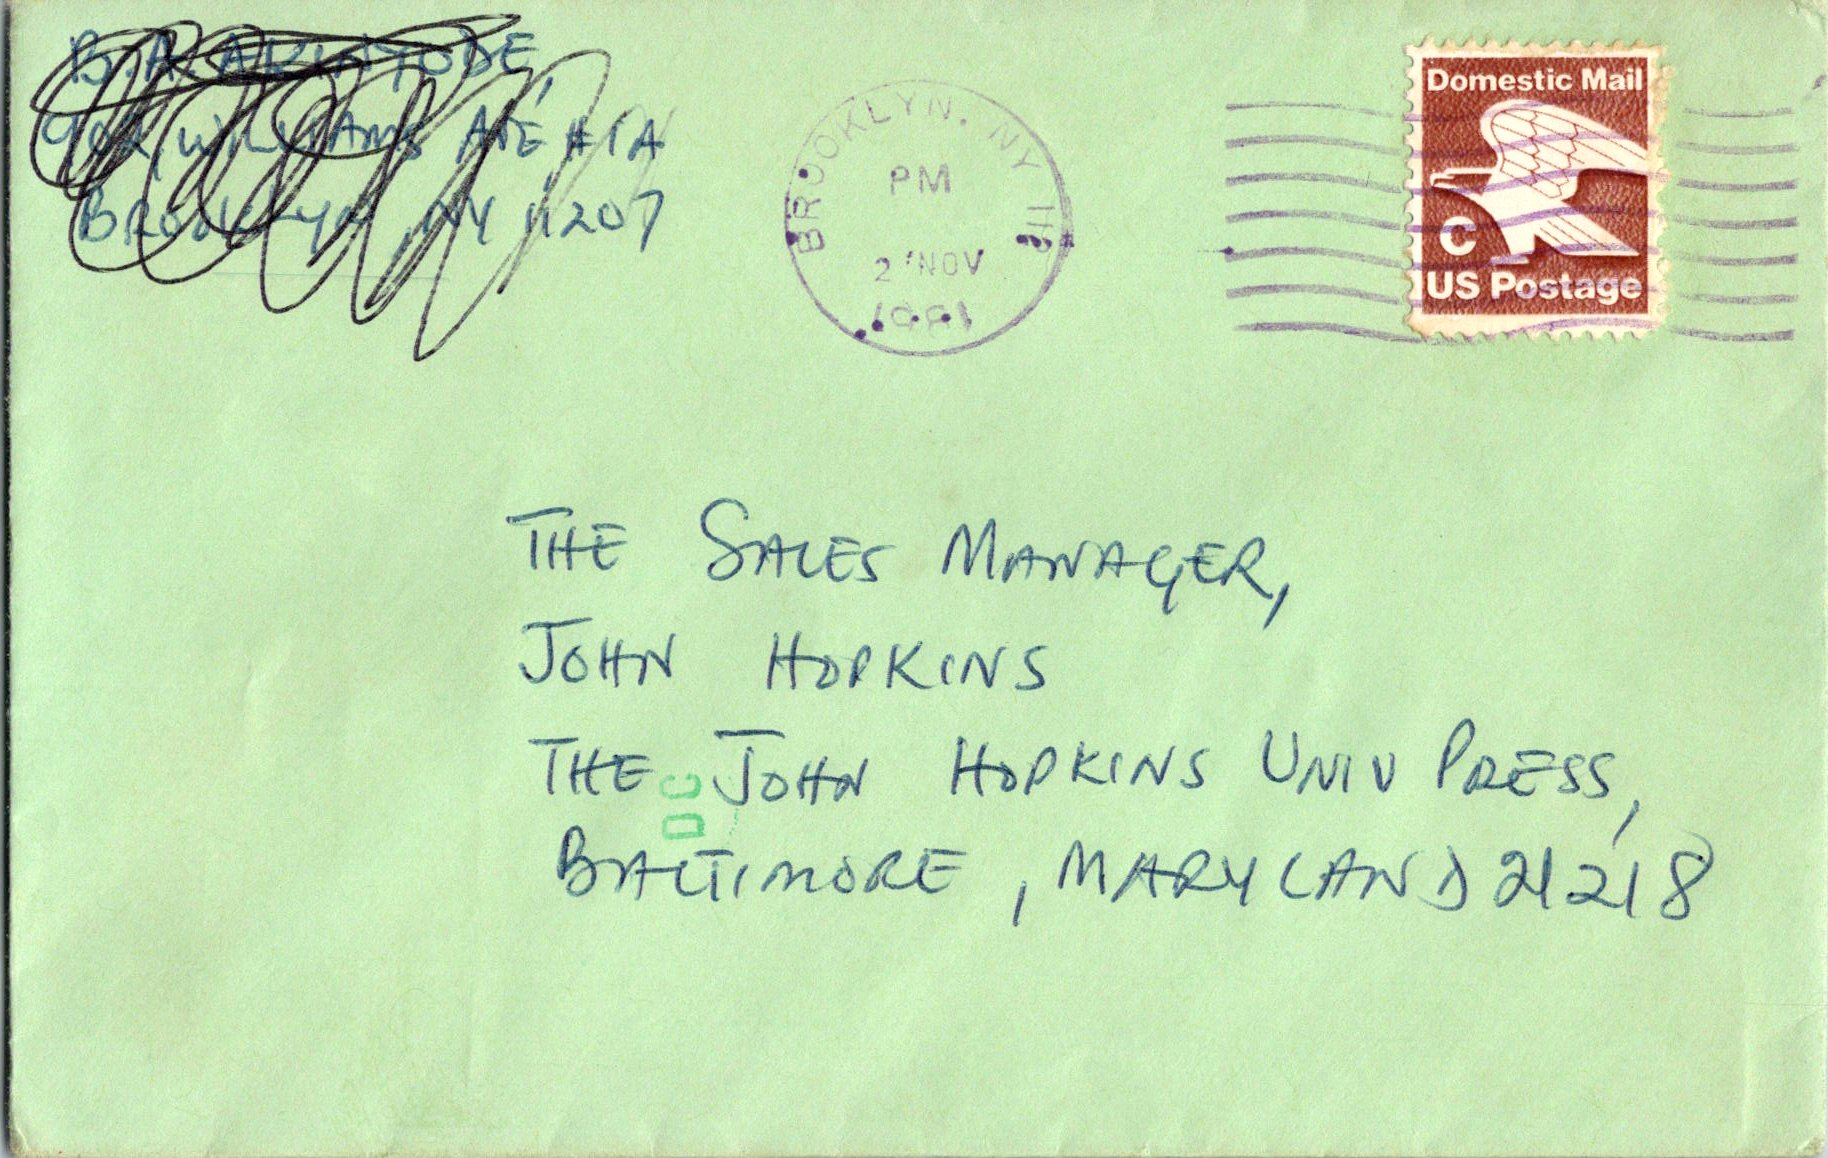 WILLIAMS AVE #1A
BROOKLYN, NY 11207
BROOKLYN, NY 11
PM
2 NOV
1981
Domestic Mail
C
US Postage
THE SALES MANAGER,
JOHN HOPKINS
THE JOHN HOPKINS UNIV PRESS,
DC
BALTIMORE, MARYLAND 21218